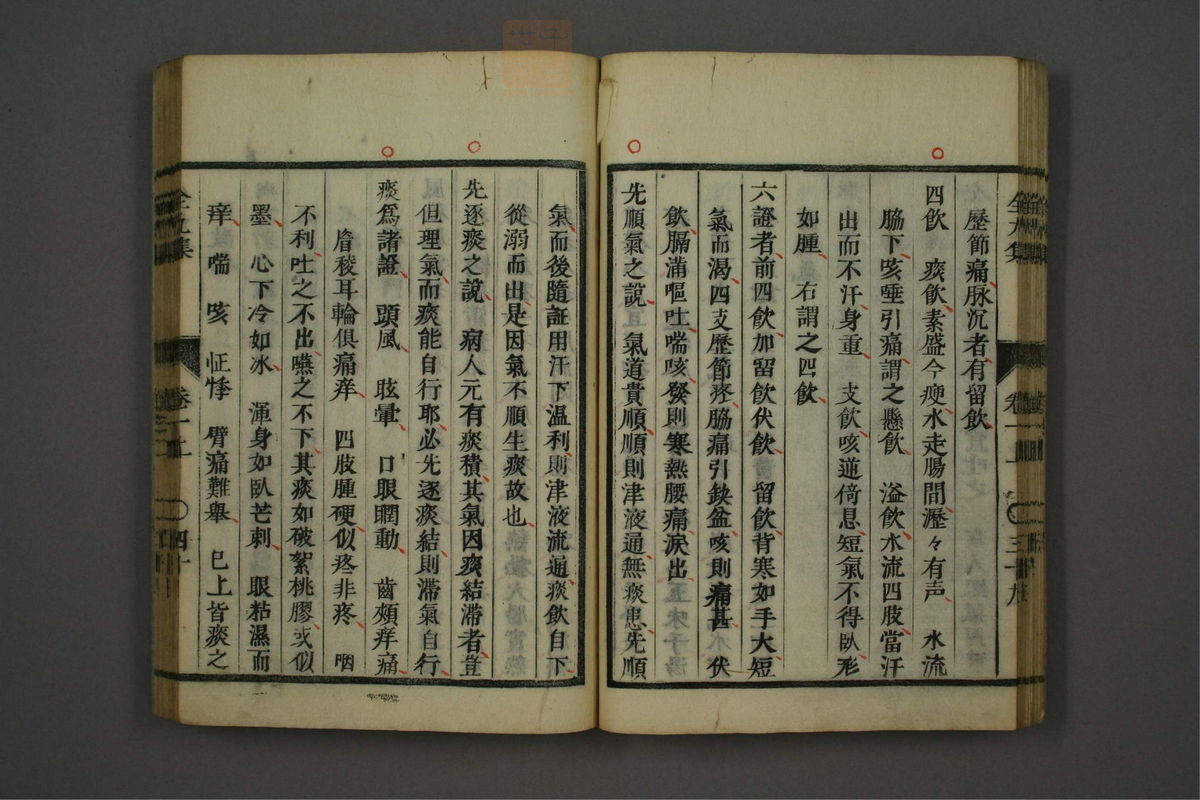 歷節痛脉沉者有留飲
四飲 痰飲素盛今瘦水走腸間瀝々有声 水流
脇下咳唾引痛謂之懸飲 溢飲水流四肢當汗
出而不汗身重 支飲咳逆倚息短氣不得臥形
如腫 右謂之四飲
六證者前四飲加留飲伏飲 留飲背寒如手大短
氣而渴四支歷節疼脇痛引缺盆咳則痛甚 伏
飲膈滿嘔吐喘咳發則寒熱腰痛淚出
先順氣之說 氣道貴順順則津液通無痰患先順
全九集 卷一上 三十九
氣而後隨証用汗下温利則津液流通痰飲自下
從溺而出是因氣不順生痰故也
先逐痰之說 病人元有痰積其氣因痰結滯者豈
但理氣而痰能自行耶必先逐痰結則滯氣自行
痰爲諸證 頭風 眩暈 口眼瞤動 齒頰痒痛
眉稜耳輪俱痛痒 四肢腫硬似疼非疼 咽
不利吐之不出嚥之不下其痰如破絮桃膠或似
墨 心下冷如冰 渾身如臥芒刺 眼粘濕而
痒 喘 咳 怔悸 臂痛難舉 巳上皆痰之
全九集 卷一上 四十